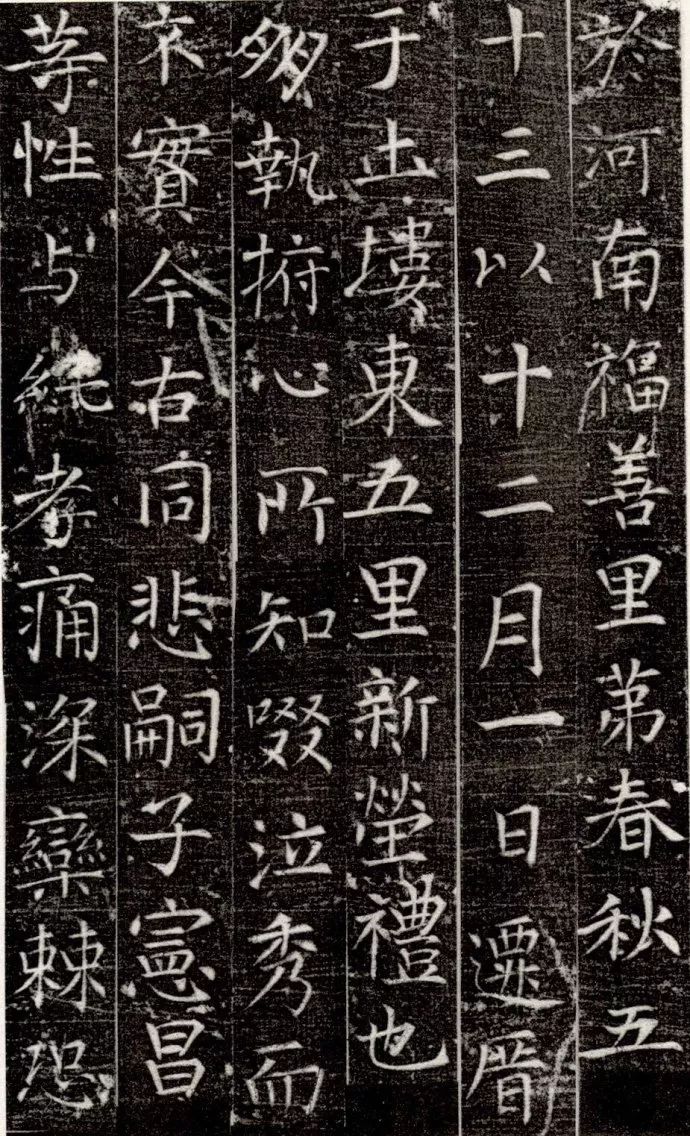 於河南福善里苐春秋五
十三以十二月一日遷厝
于土塿東五里新塋禮也
朋執拊心所知啜泣秀而
不實今古同悲嗣子憲昌
等性与純孝痛深欒棘恐